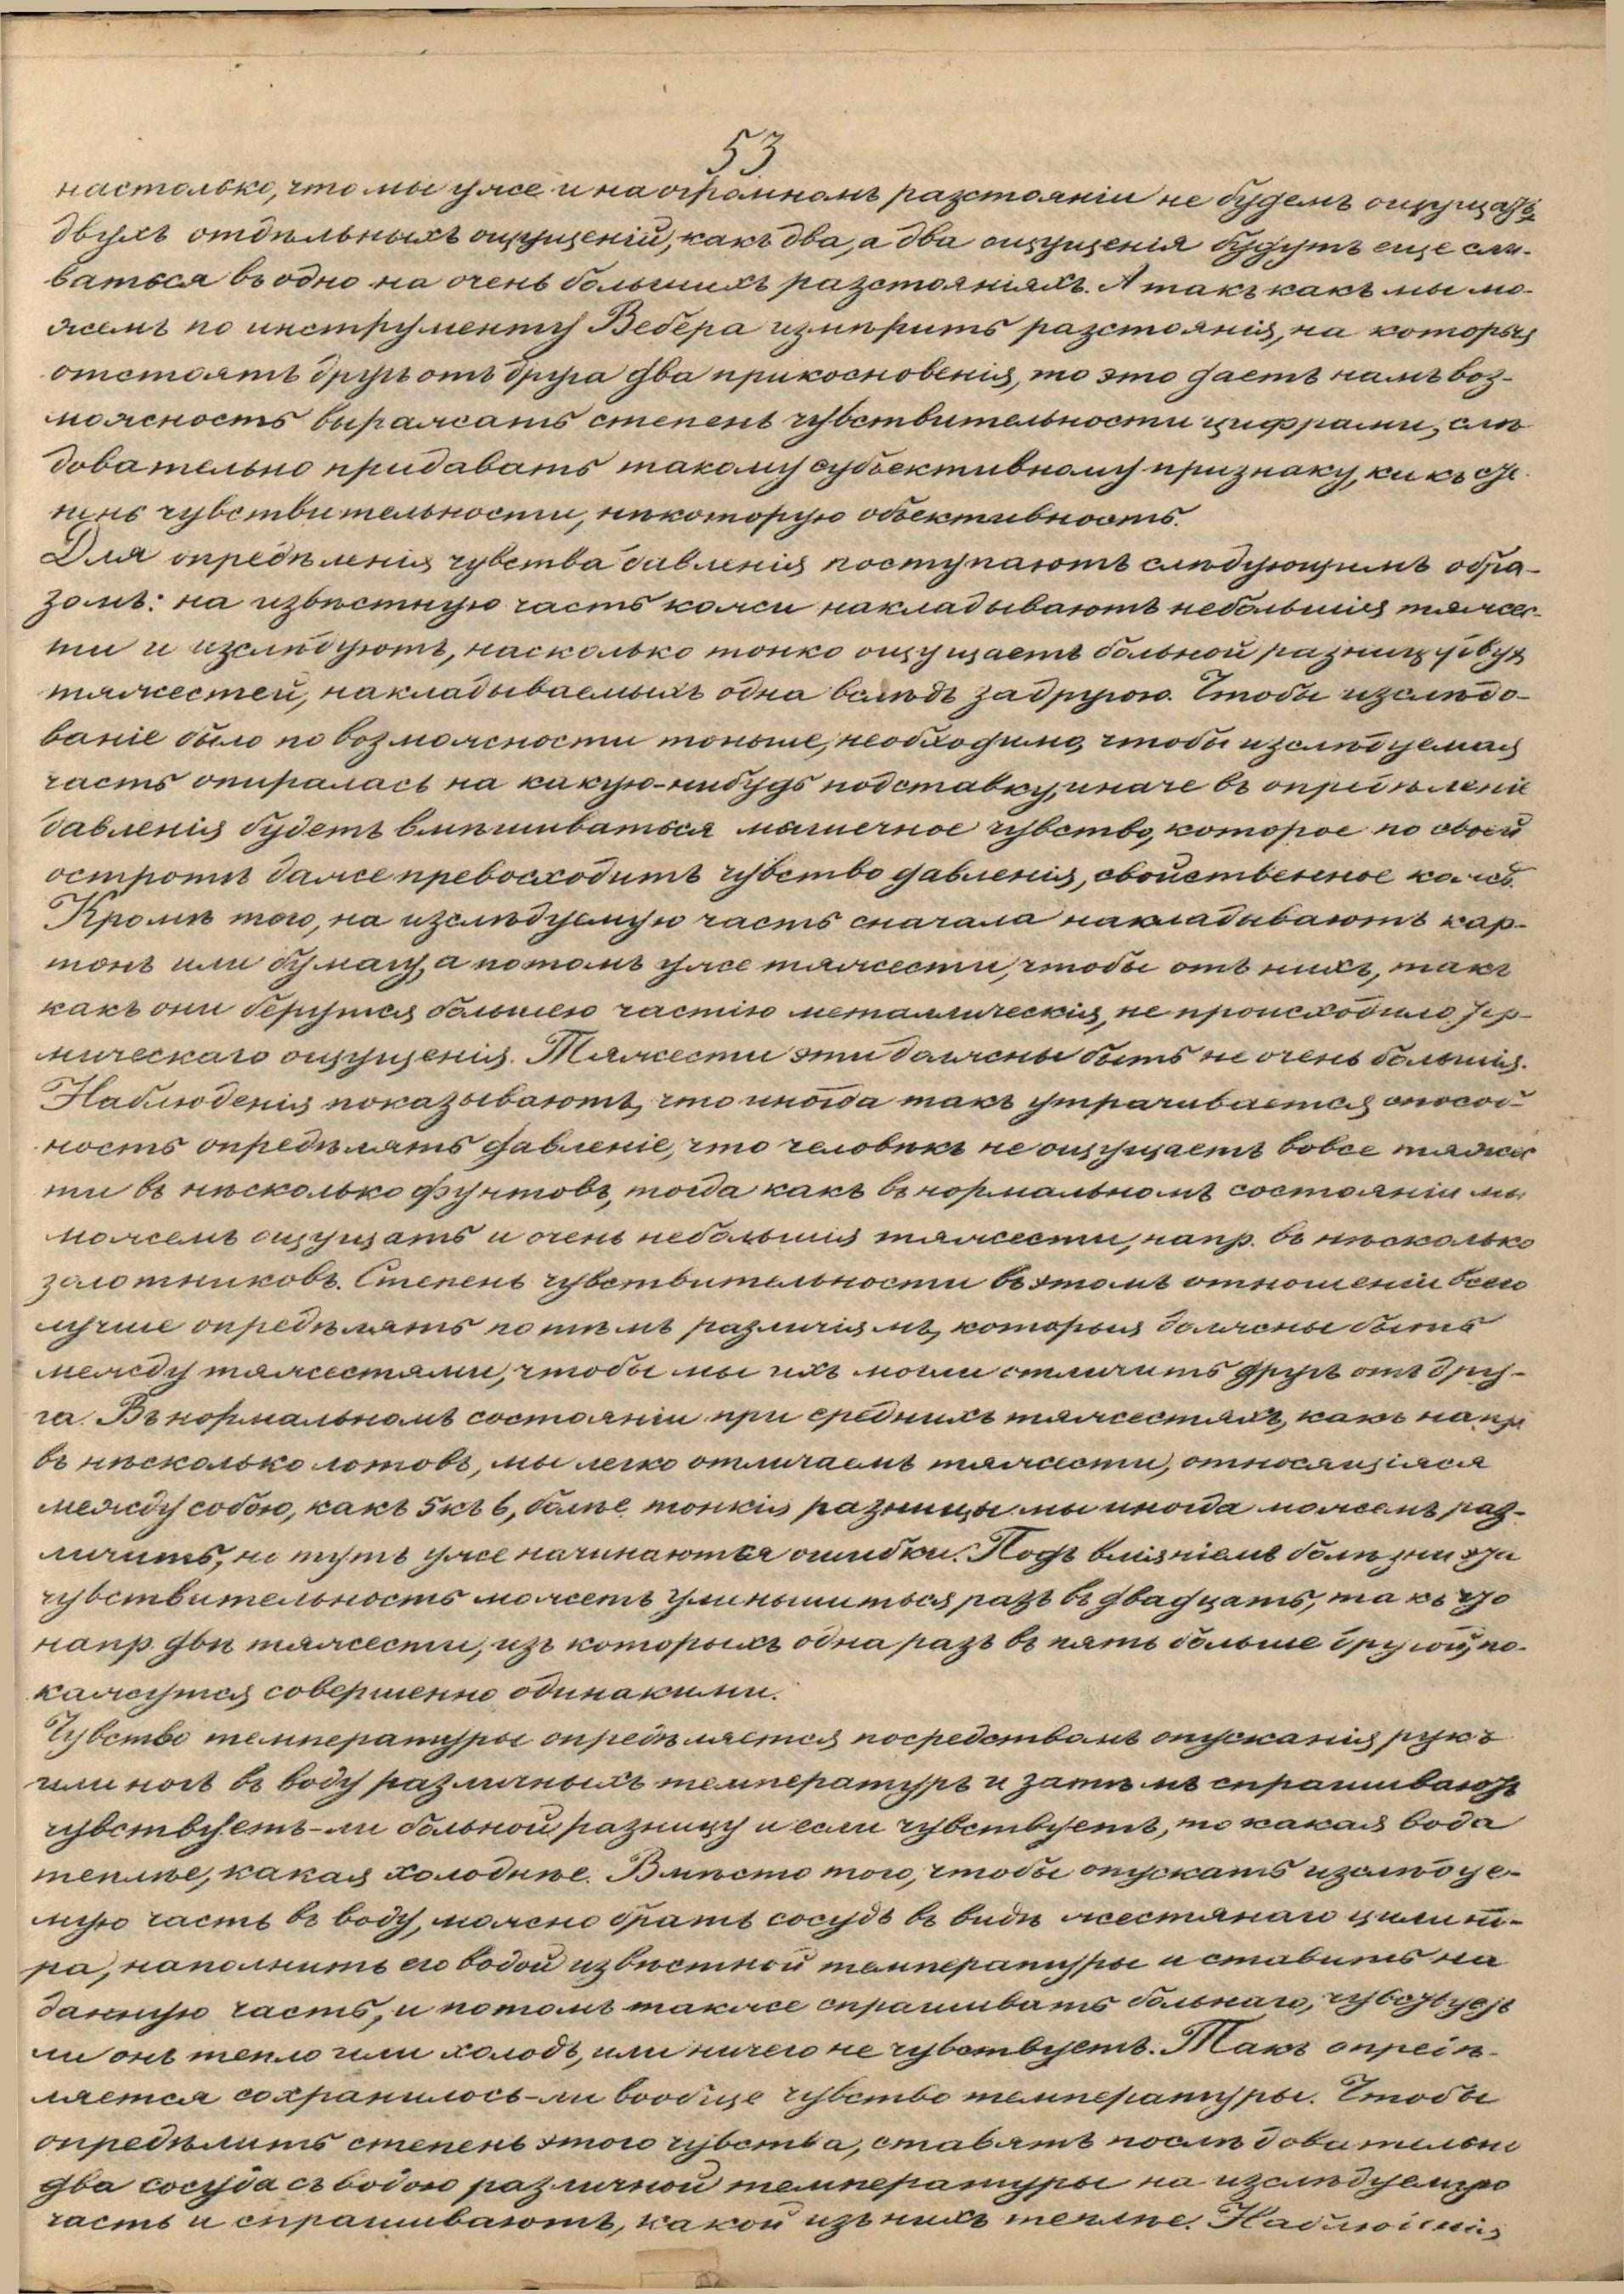 53
настолько, что мы уже и на огромномъ разстояніи не будемъ ощущать
двухъ отдѣльныхъ ощущеній, какъ два, а два ощущенія будутъ еще сли-
ваться въ одно на очень большихъ разстояніяхъ. А такъ какъ мы мо-
жемъ по инструменту Вебера измѣрить разстоянія, на которыя
отстоятъ другъ отъ друга два прикосновенія, то это даетъ намъ воз-
можность выражать степень чувствительности цифрами, слѣ
довательно придавать такому субъективному признаку, какъ сте
пень чувствительности, нѣкоторую объективность.
Для опредѣленія чувства давленія поступаютъ слѣдующимъ обра-
зомъ: на извѣстную часть кожи накладываютъ небольшія тяжес-
ти и изслѣдуютъ, насколько тонко ощущаетъ больной разницу двухъ
тяжестей, накладываемыхъ одна вслѣдъ за другою. Чтобы изслѣдо-
ваніе было по возможности тоньше, необходимо, чтобы изслѣдуемая
часть опиралась на какую-нибудь подставку, иначе въ опредѣленіе
давленія будетъ вмѣшиваться мышечное чувство, которое по своей
остротѣ даже превосходитъ чувство давленія, свойственное кожѣ.
Кромѣ того, на изслѣдуемую часть сначала накладываютъ кар-
тонъ или бумагу, а потомъ уже тяжести, чтобы отъ нихъ, такъ
какъ они берутся большею частію металлическія, не происходило тер-
мическаго ощущенія. Тяжести эти должны быть не очень большія.
Наблюденія показываютъ, что иногда такъ утрачивается способ-
ность опредѣлять давленіе, что человѣкъ не ощущаетъ вовсе тяжес
ти въ нѣсколько фунтовъ, тогда какъ въ нормальномъ состояніи мы
можемъ ощущать и очень небольшія тяжести, напр. въ нѣсколько
золотниковъ. Степень чувствительности въ этомъ отношеніи всего
лучше опредѣлять по тѣмъ различіямъ, которыя должны быть
между тяжестями, чтобы мы ихъ могли отличить другъ отъ дру-
га. Въ нормальномъ состояніи при среднихъ тяжестяхъ, какъ напр.
въ нѣсколько лотовъ, мы легко отличаемъ тяжести, относящіяся
между собою, какъ 5 къ 6, болѣе тонкія разницы мы иногда можемъ раз-
личить, но тутъ уже начинаются ошибки. Подъ вліяніемъ болѣзни эта
чувствительность можетъ уменьшиться разъ въ двадцать, такъ что
напр. двѣ тяжести, изъ которыхъ одна разъ въ пять больше другой, по-
кажутся совершенно одинакими.
Чувство температуры опредѣляется посредствомъ опусканія рукъ
или ногъ въ воду различныхъ температуръ и затѣмъ спрашиваютъ
чувствуетъ-ли больной разницу и если чувствуетъ, то какая вода
теплѣе, какая холоднѣе. Вмѣсто того, чтобы опускать изслѣдуе-
мую часть въ воду, можно брать сосудъ въ видѣ жестянаго цилинд-
ра, наполнить его водой извѣстной температуры и ставить на
данную часть, и потомъ также спрашивать больнаго, чувствуетъ
ли онъ тепло или холодъ, или ничего не чувствуетъ. Такъ опредѣ-
ляется сохранилось-ли вообще чувство температуры. Чтобы
опредѣлить степень этого чувства, ставятъ послѣдовательно
два сосуда съ водою различной температуры на изслѣдуемую
часть и спрашиваютъ, какой изъ нихъ теплѣе. Наблюденія